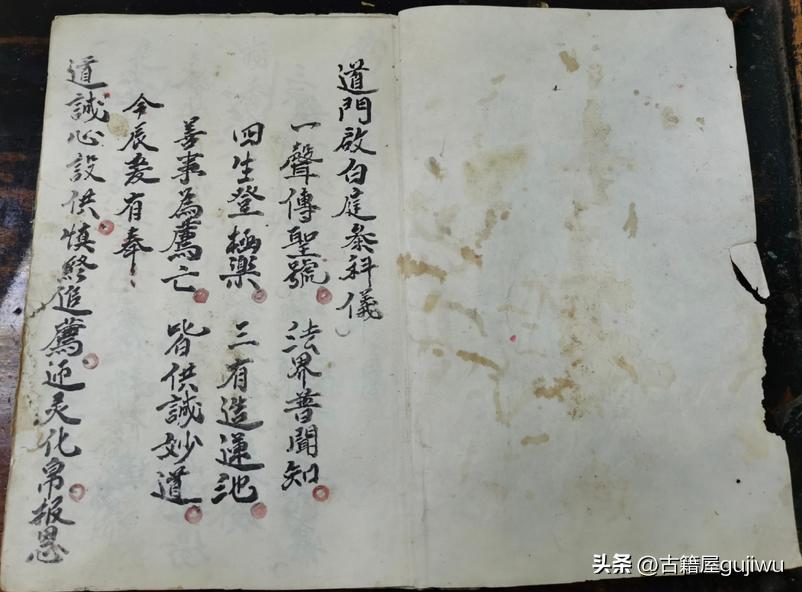 道門啟白庭叅科儀
一聲傳聖號 法界普聞知
四生登極楽 三有造蓮池
善事為薦亡 皆供誠妙道
今辰爰有奉
道誠心設供慎終追薦迎灵化帛报恩
头条 @古籍屋gujiwu